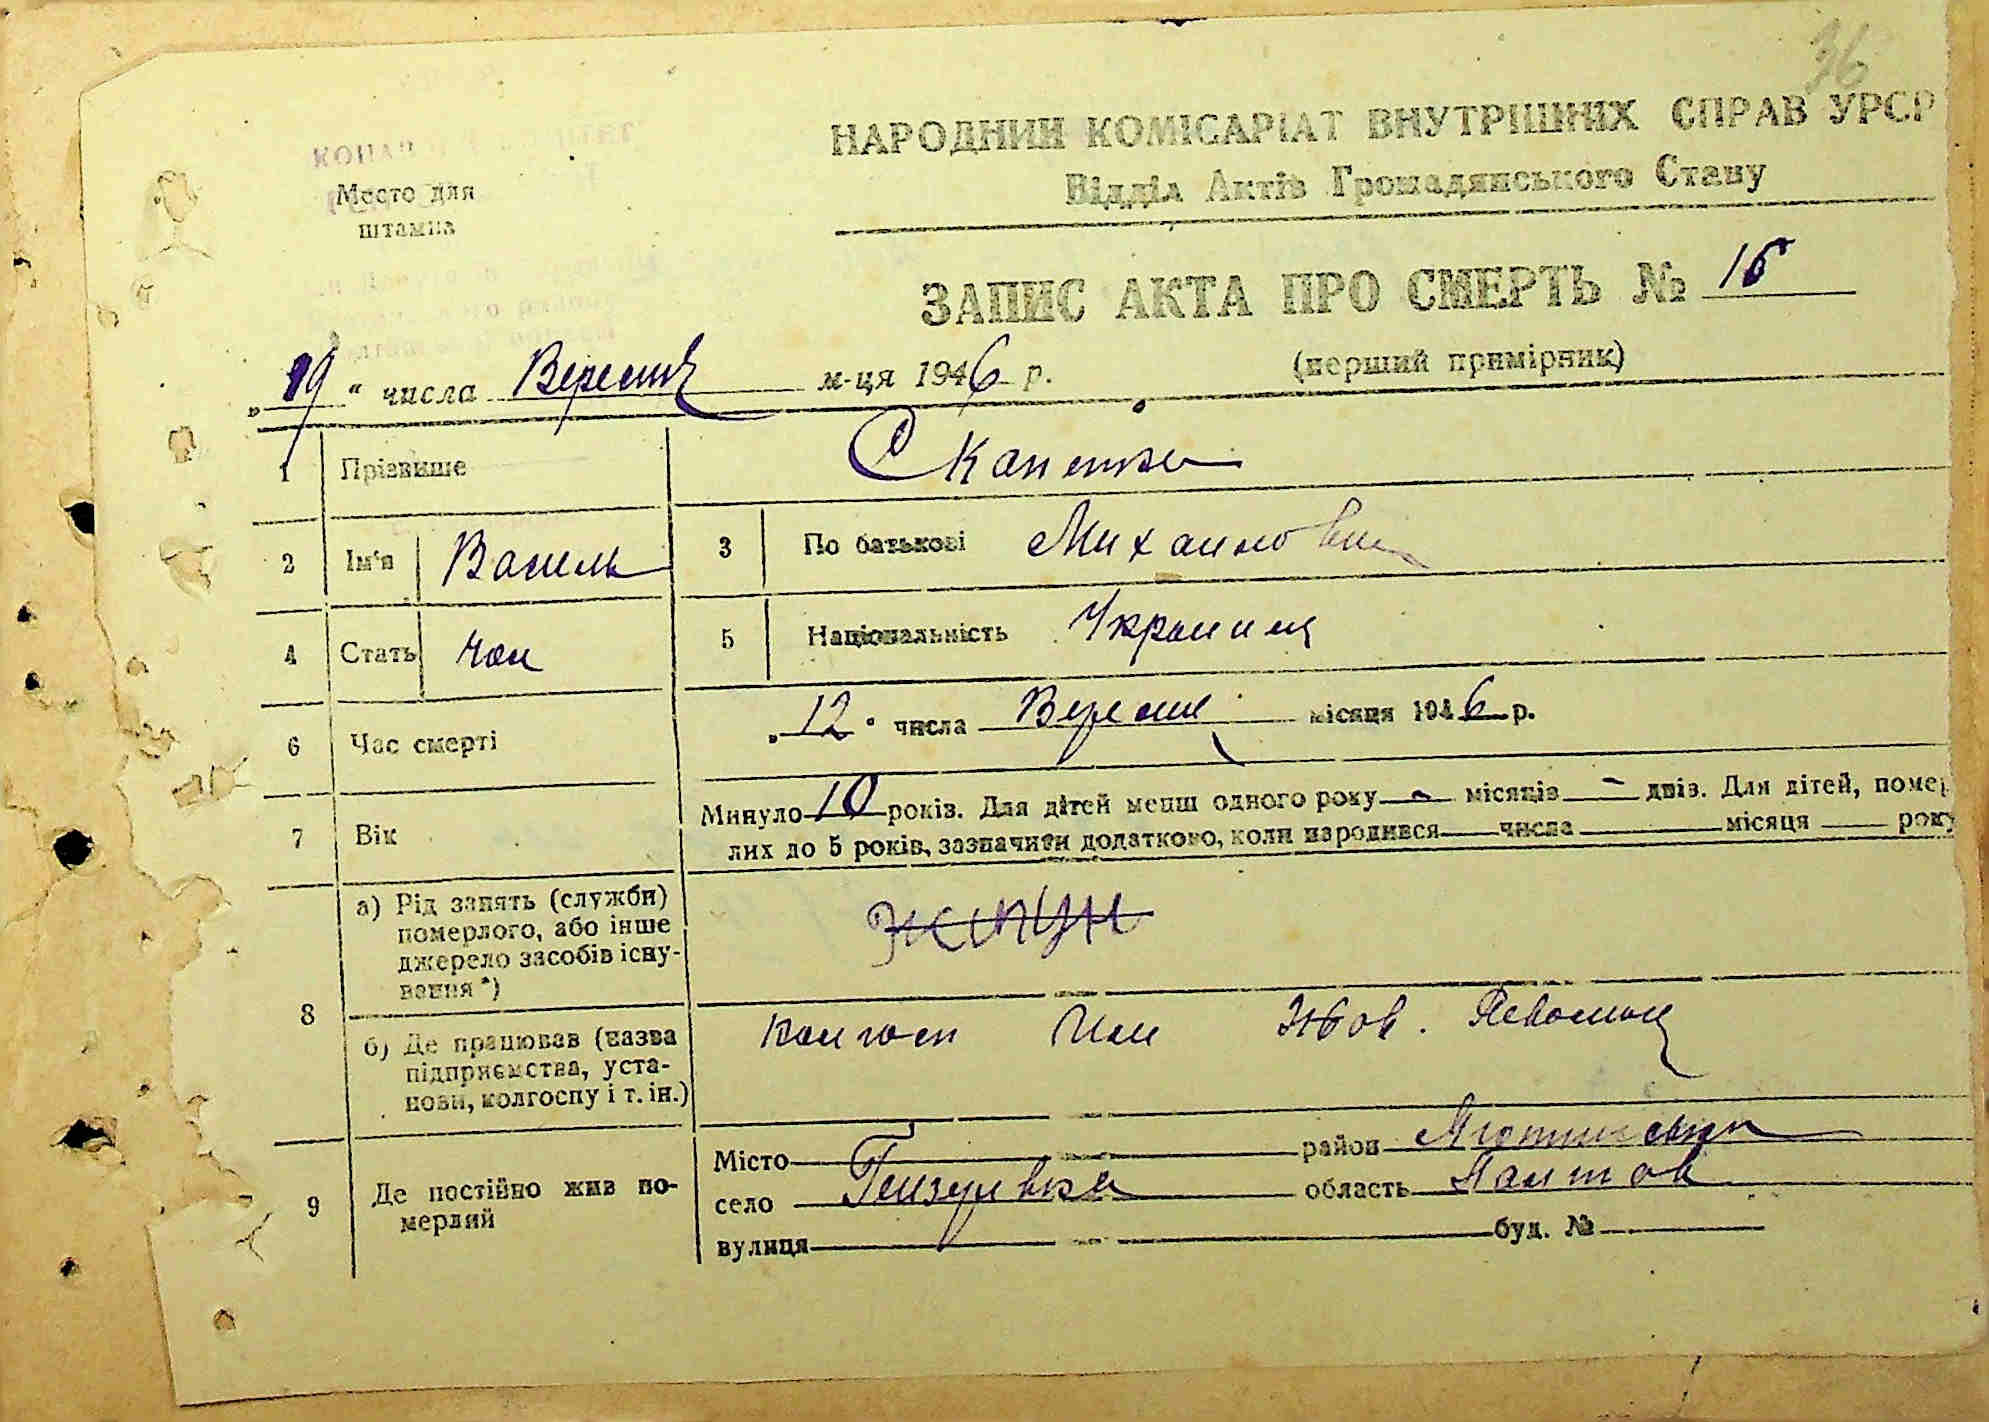 36
НАРОДНИЙ КОМІСАРІАТ ВНУТРІШНІХ СПРАВ УРСР
Відділ Актів Громадянського Стану
Место для
штампа
ЗАПИС АКТА ПРО СМЕРТЬ № 16
(перший примірник)
„19“ числа Вересня м-ця 1946 р.
1 Прізвище
2 Ім'я Василь 3 По батькові Михайлович
4 Стать Чол 5 Національність Українец
6 Час смерті „12“ числа Вересня місяця 1946 р.
7 Вік Минуло 10 років. Для дітей менш одного року - місяців - днів. Для дітей, помер
лих до 5 років, зазначити додатково, коли народився числа місяця року
8 а) Рід занять (служби)
померлого, або інше
джерело засобів існу-
вання*)
б) Де працював (назва
підприємства, уста-
нови, колгоспу і т. ін.)
колгосп Жов. Революц
9 Де постійно жив по-
мерлий
Місто район
село область Полтов
вулиця буд. №